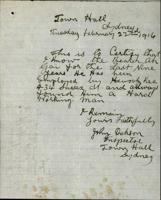 Town Hall
Sydney
Tuesday February 22nd 1916
This is to Certify that
I know the Bearer Ah
Gar For the Last Nine
years He Has been
Employed by
434 and always
Found Him a Hard
Working Man
I Remain
Yours Faithfully
John
Inspector
Town Hall
Sydney